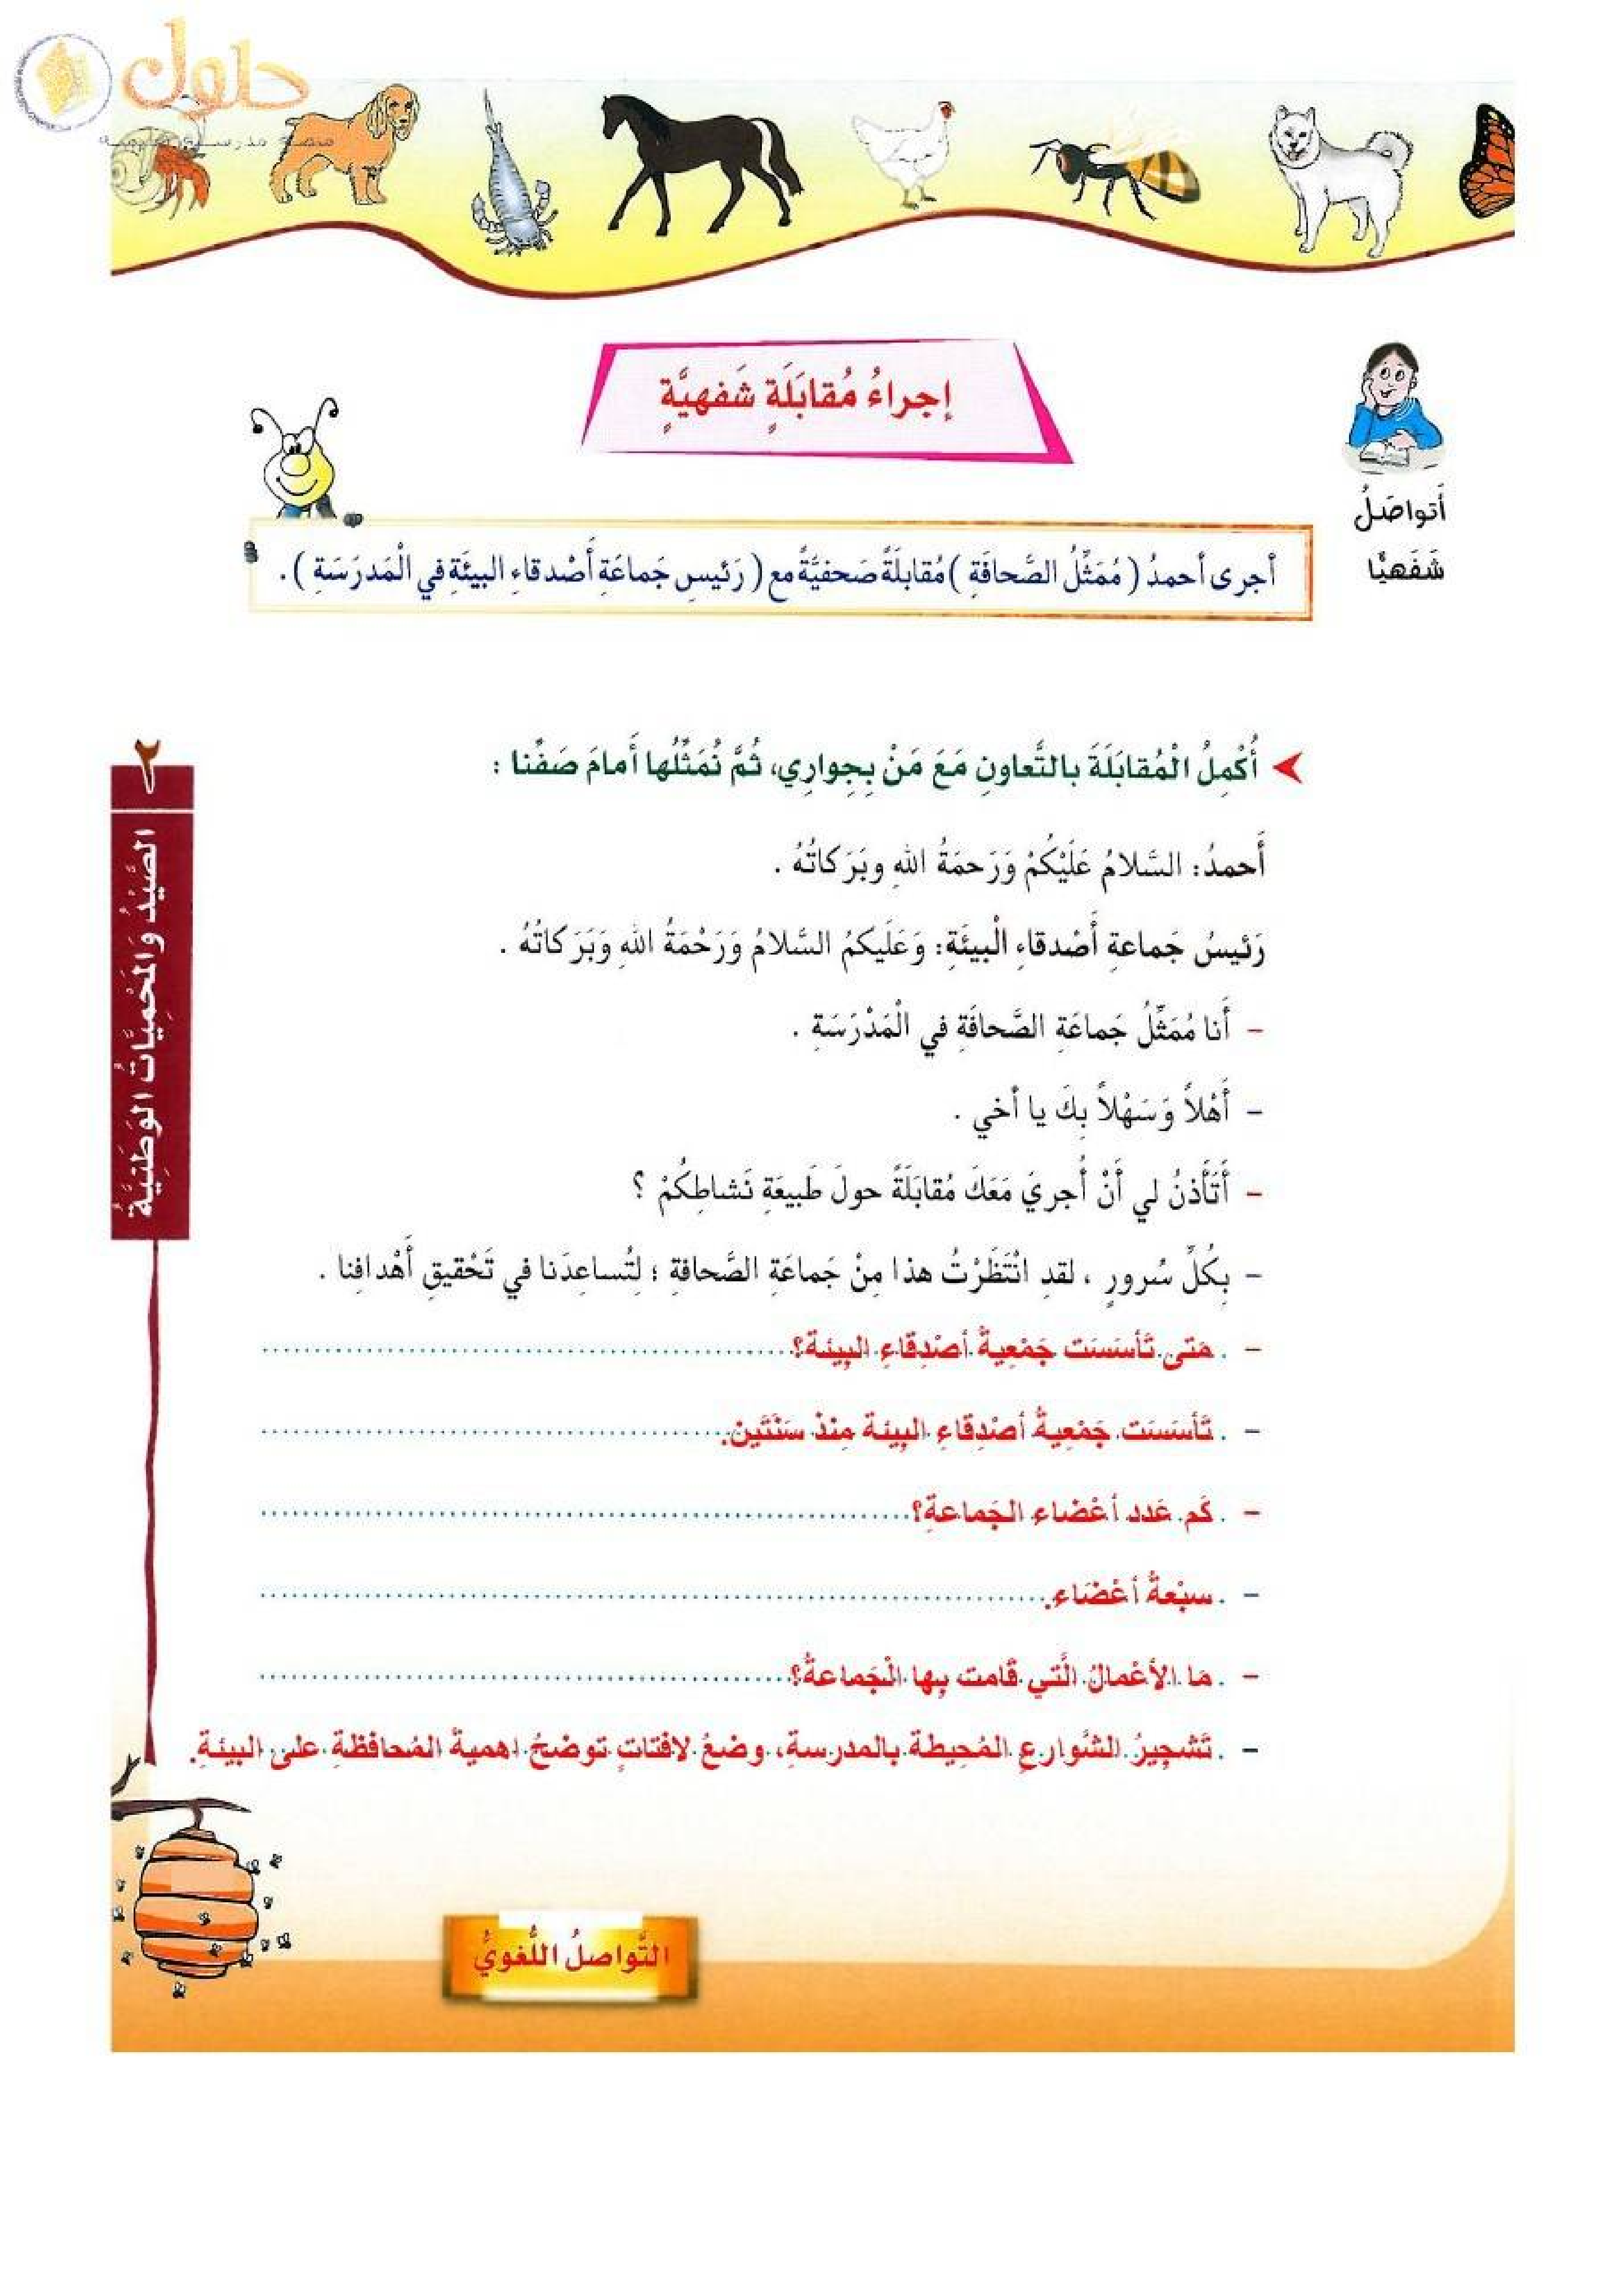 حلول
إجراءُ مُقابَلَةٍ شَفهيَّةٍ
أَتواصَلُ
شَفَهيًّا
أجرى أحمدُ ( مُمَثِّلُ الصَّحافَةِ ) مُقابلَةً صَحفيَّةً مع ( رَئيسِ جَماعَةِ أَصْدقاءِ البيئَةِ في الْمَدرَسَةِ ) .
أُكْمِلُ الْمُقابَلَةَ بالتَّعاونِ مَعَ مَنْ بِجِواري، ثُمَّ نُمَثِّلُها أَمامَ صَفِّنا :
أَحمدُ: السَّلامُ عَلَيْكُمْ وَرَحمَةُ اللهِ وبَرَكاتُهُ .
رَئيسُ جَماعةِ أَصْدقاءِ الْبيئَةِ: وَعَلَيكمُ السَّلامُ وَرَحْمَةُ اللهِ وَبَرَكاتُهُ .
– أَنا مُمَثِّلُ جَماعَةِ الصَّحافَةِ في الْمَدْرَسَةِ .
– أَهْلاً وَسَهْلاً بِكَ يا أَخي .
– أَتَأْذنُ لي أَنْ أُجرِيَ مَعَكَ مُقابَلَةً حولَ طَبيعَةِ نَشاطِكُمْ ؟
– بِكُلِّ سُرورٍ ، لقدِ انْتَظَرْتُ هذا مِنْ جَماعَةِ الصَّحافةِ ؛ لِتُساعِدَنا في تَحْقيقِ أَهْدافِنا .
– مَتى تَأسَسَت جَمْعِيةُ أصْدِقاءِ البِيئة؟
– تَأسَسَت جَمْعِيةُ أصْدِقاءِ البِيئة مِنذُ سَنَتَين.
– كَم عَدد أعْضاء الجَماعةِ؟
– سبْعةُ أعْضَاء.
– مَا الأعْمالُ الَّتي قَامت بِها الْجَماعةُ؟
– تَشجِيرُ الشَّوارعِ المُحِيطة بالمدرسةِ، وضعُ لافتاتٍ توضحُ اهميةَ المُحافظةِ على البيئةِ.
٢
الصَّيْدُ وَالمَحْمِيَّاتُ الوَطَنِيَّةُ
التَّواصلُ اللُّغويُّ